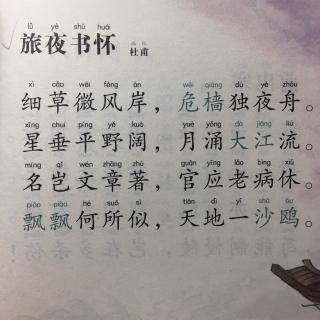 lǚ yè shū huái
旅夜书怀 杜甫
xì cǎo wēi fēng àn wēi qiáng dú yè zhōu
细草微风岸，危樯独夜舟。
xīng chuí píng yě kuò yuè yǒng dà jiāng liú
星垂平野阔，月涌大江流。
míng qǐ wén zhāng zhù guān yīng lǎo bìng xiū
名岂文章著，官应老病休。
piāo piāo hé suǒ sì tiān dì yī shā ōu
飘飘何所似，天地一沙鸥。